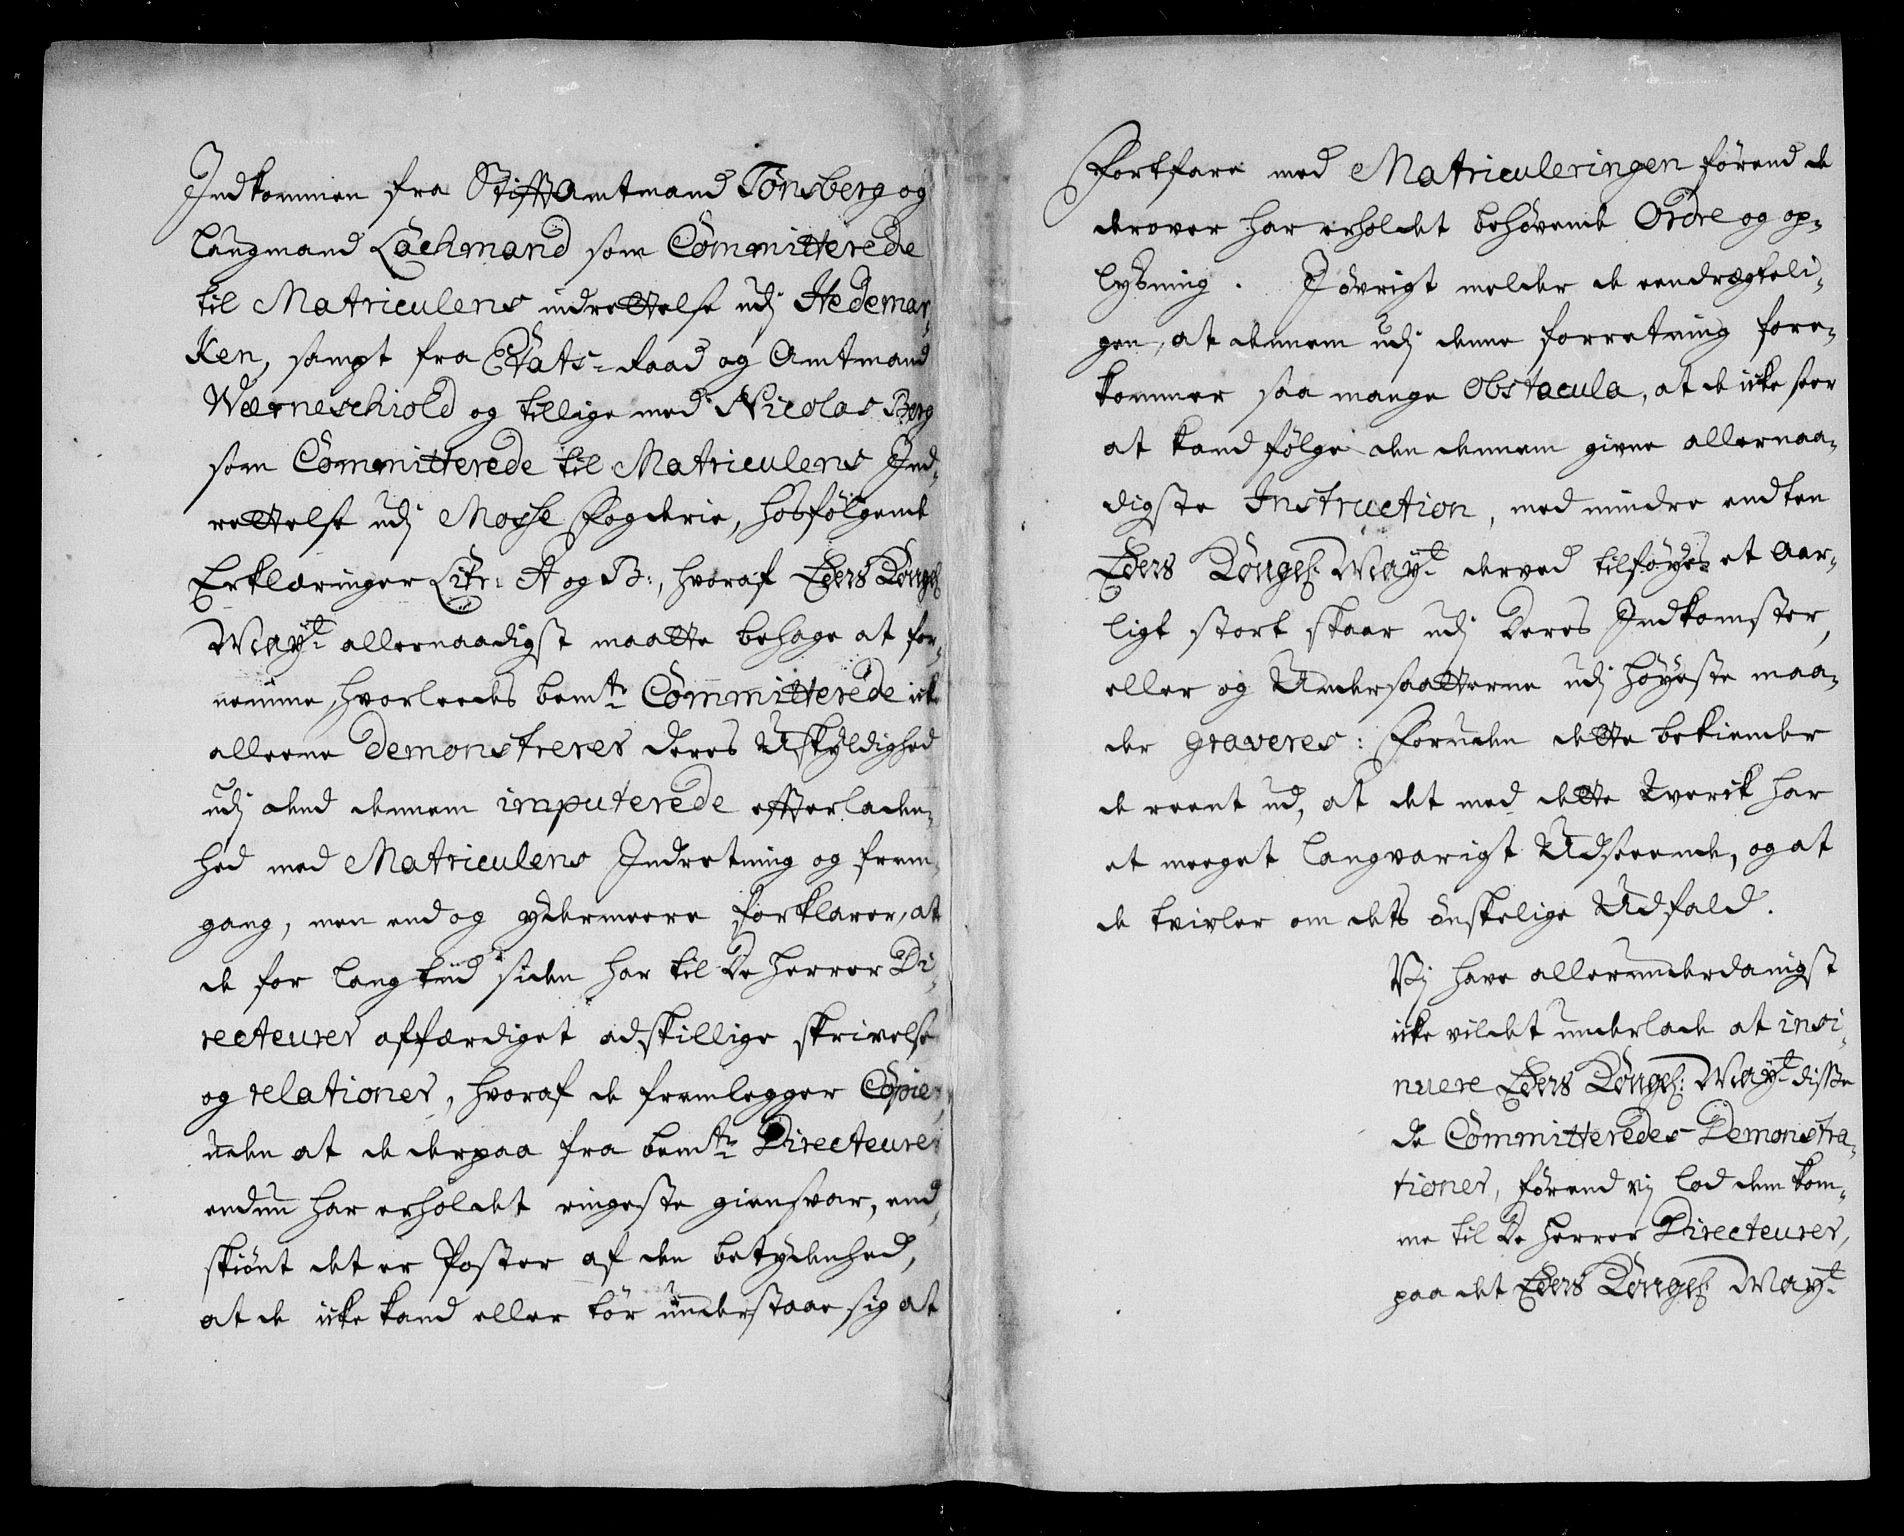 Indkommen fra Stifftamtmand Tønsberg og
Laugmand Lachmand som Committerede
til Matriculens indrettelse udj Hedemar-
Ken, sampt fra Etats-Raad og Amtmand
Wærneschiold og tillige med Nicolas Berg
som Committerede til Matriculens Ind-
rettelse udj Mosse Fogderie, hosfølgende
Erklæringer Litr: A og B:, hvoraf Eders Kongel:
May:t allernaadigst maatte behage at for-
nemme, hvorleedes bem:te Committerede icke
alleene Demonstrerer deres Uskyldighed
udj dend dennem imputerede efterladen-
hed med Matriculens Indretning og frem-
gang, men end og ydermeere forklarer, at
de for lang tiid siden har til De Herrer Di-
recteurer affærdiget adskillige skrivelse
og relationer, hvoraf de fremlegger Copier
uden at de derpaa fra bem:te Directeurer
endnu har erholdet ringeste giensvar, end-
skiønt det er Poster af den betydenhed,
at de icke kand eller tør understaae sig at
Fortfare med Matriculeringen førend de
derover har erholdet behøvende Ordre og op-
lysning. I øvrigt melder de eendrægteli-
gen, at dennem udj denne forretning fore-
kommer saa mange Obstacula, at de icke seer
at kand følge den dennem givne allernaa-
digste Instruction, med mindre endten
Eders Kongel: May:t derved tilføyes et Aar-
ligt stort skaar udj Deres Indkomster,
eller og Undersaatterne udj høyeste maa-
der graveres: Foruden dette bekiender
de reent ud, at det med dette Verck har
et meeget langvarigt Udseende, og at
de tvivler om dets ønskelige Udfald.
Vj have allerunderdanigst
icke vildet underlade at insi-
nuere Eders Kongel: May:t disse
de Committeredes Demonstra-
tioner, førend vj lod dem kom-
me til De Herrer Directeurer,
paa det Eders Kongel: May:t